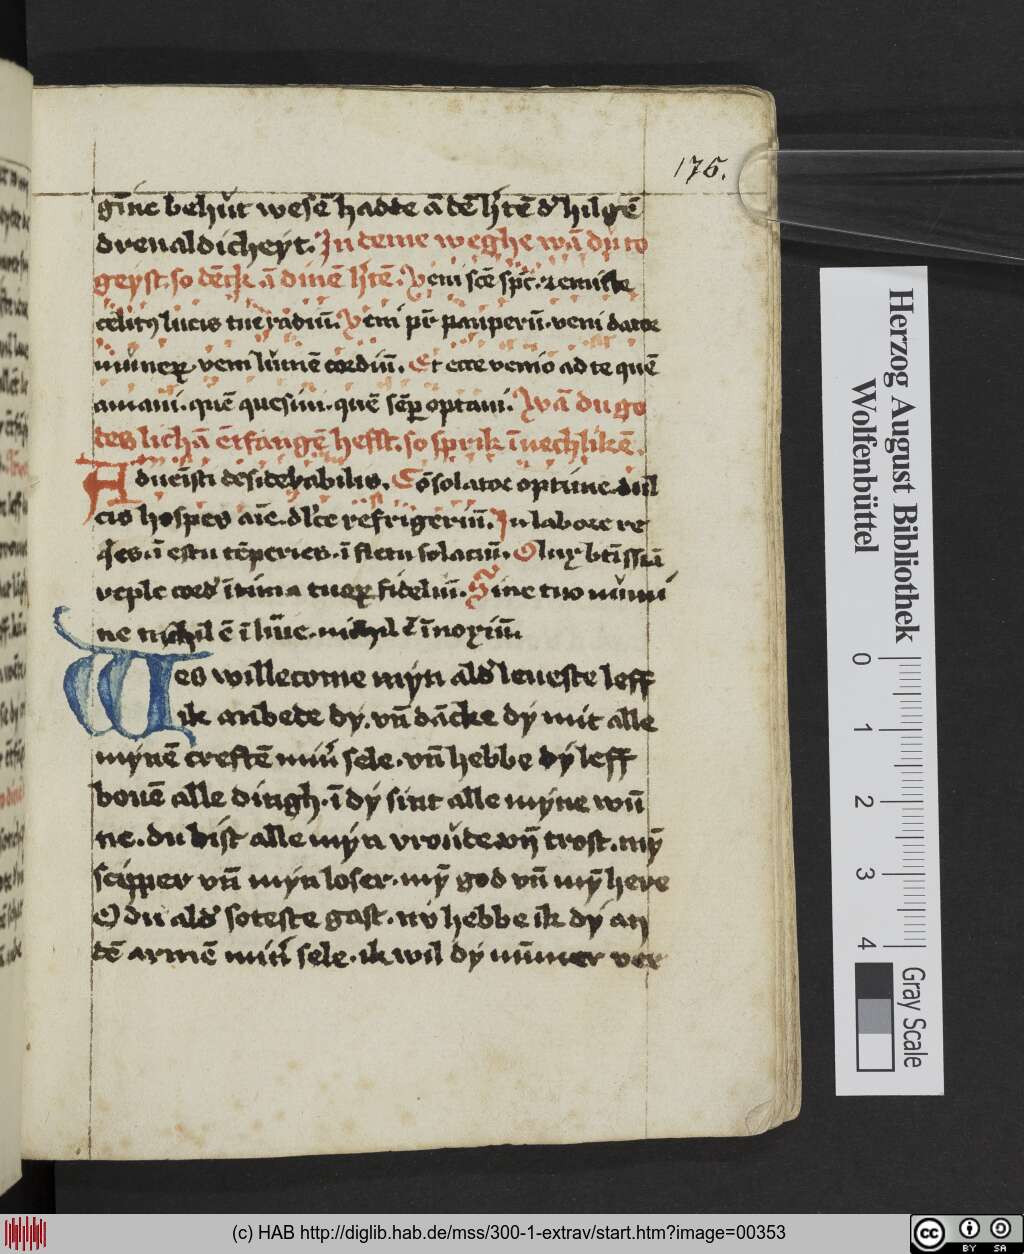 175.
gīne behut wesē hadde ā dē lichtē d' hilgē
drevaldicheyt. In deme weghe wā dy to
geyst. so dēck. ā dinē lichtē. Veni scē spc. et emitte
celitꝰ lucis tue radiū. Veni pr̄ pauperū. veni dator
munerꝝ. veni lumē cordiū. Et ecce venio ad te quē
amavi. quē quesivi. quē sēꝑ optavi. Wā du go
des lichā ētfangē hefst. so sprik īnechlikē.
Advenisti desiderabilis. Cōsolator optime. dul
cis hospes aīe. dulce refrigeriū. In labore re
qes. ī estu tēperies. ī fletu solaciū. O lux btissiā
reple cord' ītima tuorꝝ fideliū. Sine tuo numi
ne nichil ē ī hōīe. nichil ē īnoxiū.
Wes willecome myn ald' leveste leff
ik anbede dy. vn̄ dācke dy mit alle
mynē creftē min' sele. vn̄ hebbe dy leff
bovē alle dingh. ī dy sint alle myne wū
ne. du bist alle myn vroude vn̄ trost. my̅
scipper vn̄ myn loser. my̅ god vn̄ my̅ here
O du ald' soteste gast. nv hebbe ik dy an
dē armē min' sele. ik wil dy nūmer ver
Herzog August Bibliothek
Wolfenbüttel
0 1 2 3 4
Gray Scale
(c) HAB http://diglib.hab.de/mss/300-1-extrav/start.htm?image=00353
cc BY SA